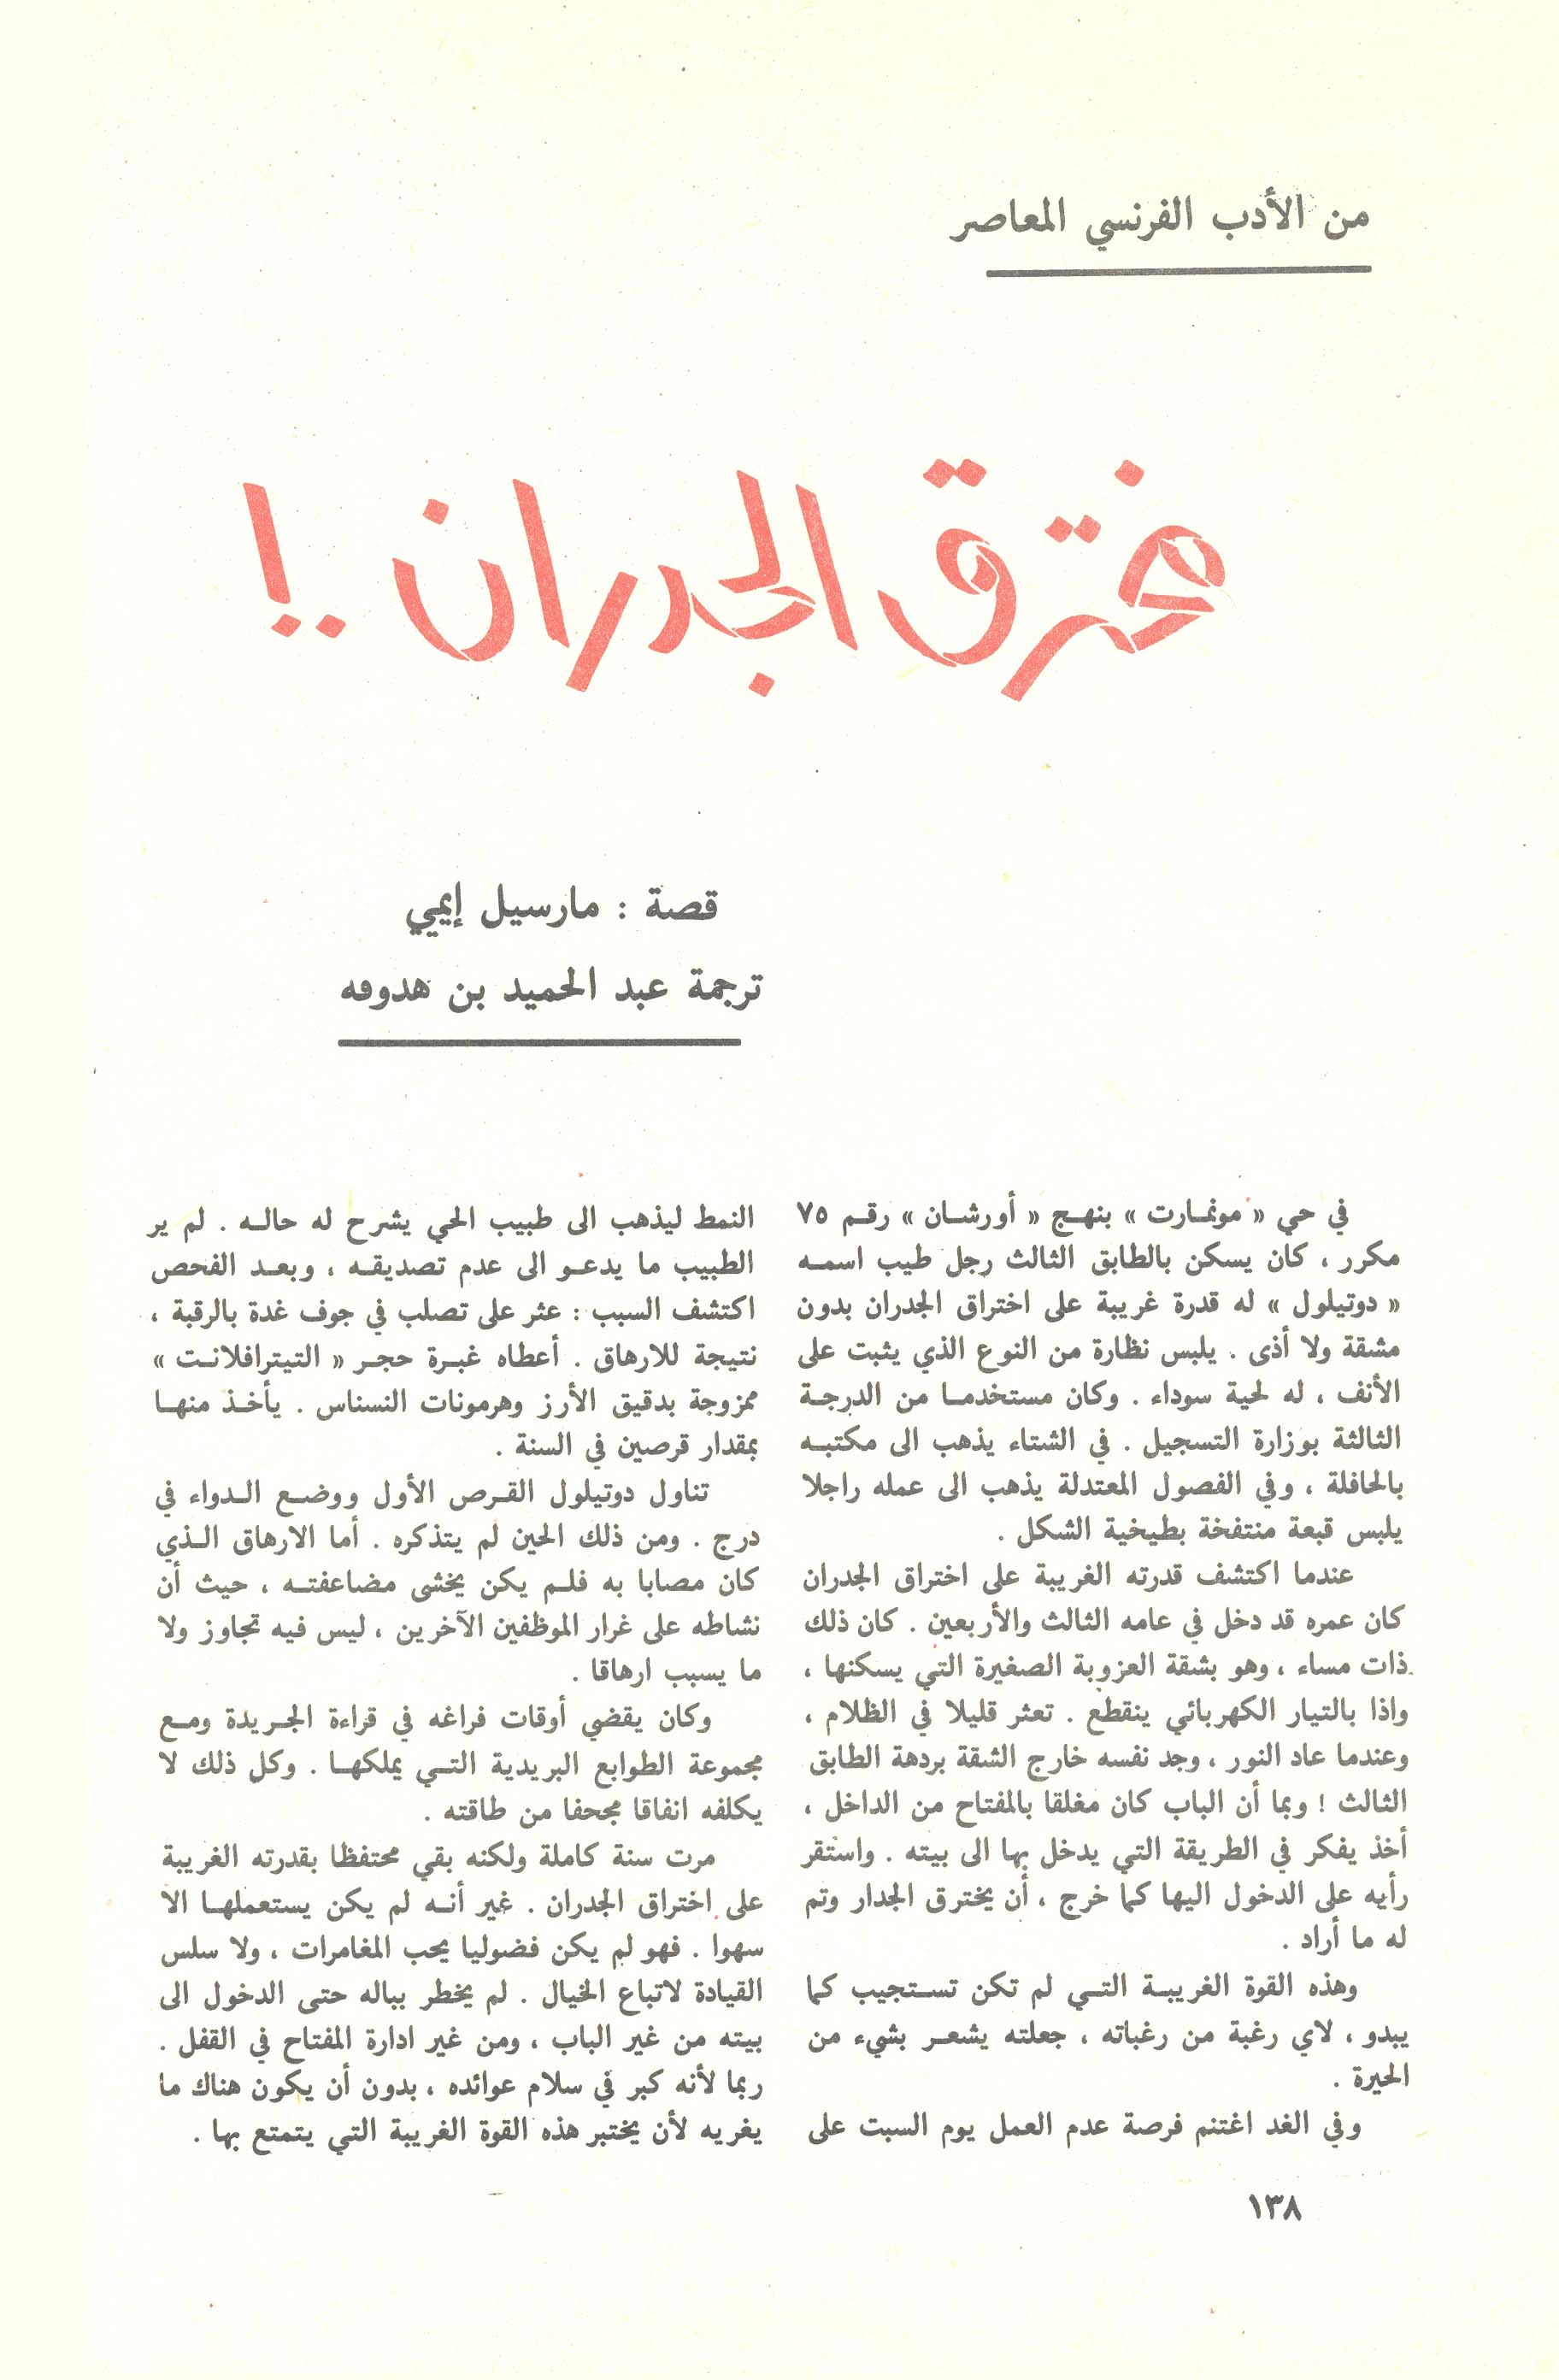 من الأدب الفرنسي المعاصر
مخترق الجدران ..!
قصة : مارسيل إيمي
ترجمة عبد الحميد بن هدوقه
في حي « مونمارت » بنهج « أورشان » رقم ٧٥
مكرر ، كان يسكن بالطابق الثالث رجل طيب اسمه
« دوتيلول » له قدرة غريبة على اختراق الجدران بدون
مشقة ولا أذى . يلبس نظارة من النوع الذي يثبت على
الأنف ، له لحية سوداء . وكان مستخدما من الدرجة
الثالثة بوزارة التسجيل . في الشتاء يذهب الى مكتبه
بالحافلة ، وفي الفصول المعتدلة يذهب الى عمله راجلا
يلبس قبعة منتفخة بطيخية الشكل .
عندما اكتشف قدرته الغريبة على اختراق الجدران
كان عمره قد دخل في عامه الثالث والأربعين . كان ذلك
ذات مساء ، وهو بشقة العزوبة الصغيرة التي يسكنها ،
واذا بالتيار الكهربائي ينقطع . تعثر قليلا في الظلام ،
وعندما عاد النور ، وجد نفسه خارج الشقة بردهة الطابق
الثالث ! وبما أن الباب كان مغلقا بالمفتاح من الداخل ،
أخذ يفكر في الطريقة التي يدخل بها الى بيته . واستقر
رأيه على الدخول اليها كما خرج ، أن يخترق الجدار وتم
له ما أراد .
وهذه القوة الغريبة التي لم تكن تستجيب كما
يبدو ، لاي رغبة من رغباته ، جعلته يشعر بشيء من
الحيرة .
وفي الغد اغتنم فرصة عدم العمل يوم السبت على
النمط ليذهب الى طبيب الحي يشرح له حاله . لم ير
الطبيب ما يدعو الى عدم تصديقه ، وبعد الفحص
اكتشف السبب : عثر على تصلب في جوف غدة بالرقبة ،
نتيجة للارهاق . أعطاه غبرة حجر « التيترافلانت »
ممزوجة بدقيق الأرز وهرمونات النسناس . يأخذ منها
بمقدار قرصين في السنة .
تناول دوتيلول القرص الأول ووضع الدواء في
درج . ومن ذلك الحين لم يتذكره . أما الارهاق الذي
كان مصابا به فلم يكن يخشى مضاعفته ، حيث أن
نشاطه على غرار الموظفين الآخرين ، ليس فيه تجاوز ولا
ما يسبب ارهاقا .
وكان يقضي أوقات فراغه في قراءة الجريدة ومع
مجموعة الطوابع البريدية التي يملكها . وكل ذلك لا
يكلفه انفاقا مجحفا من طاقته .
مرت سنة كاملة ولكنه بقي محتفظا بقدرته الغريبة
على اختراق الجدران . غير أنه لم يكن يستعملها الا
سهوا . فهو لم يكن فضوليا يحب المغامرات ، ولا سلس
القيادة لاتباع الخيال . لم يخطر بباله حتى الدخول الى
بيته من غير الباب ، ومن غير ادارة المفتاح في القفل .
ربما لأنه كبر في سلام عوائده ، بدون أن يكون هناك ما
يغريه لأن يختبر هذه القوة الغريبة التي يتمتع بها .
١٣٨